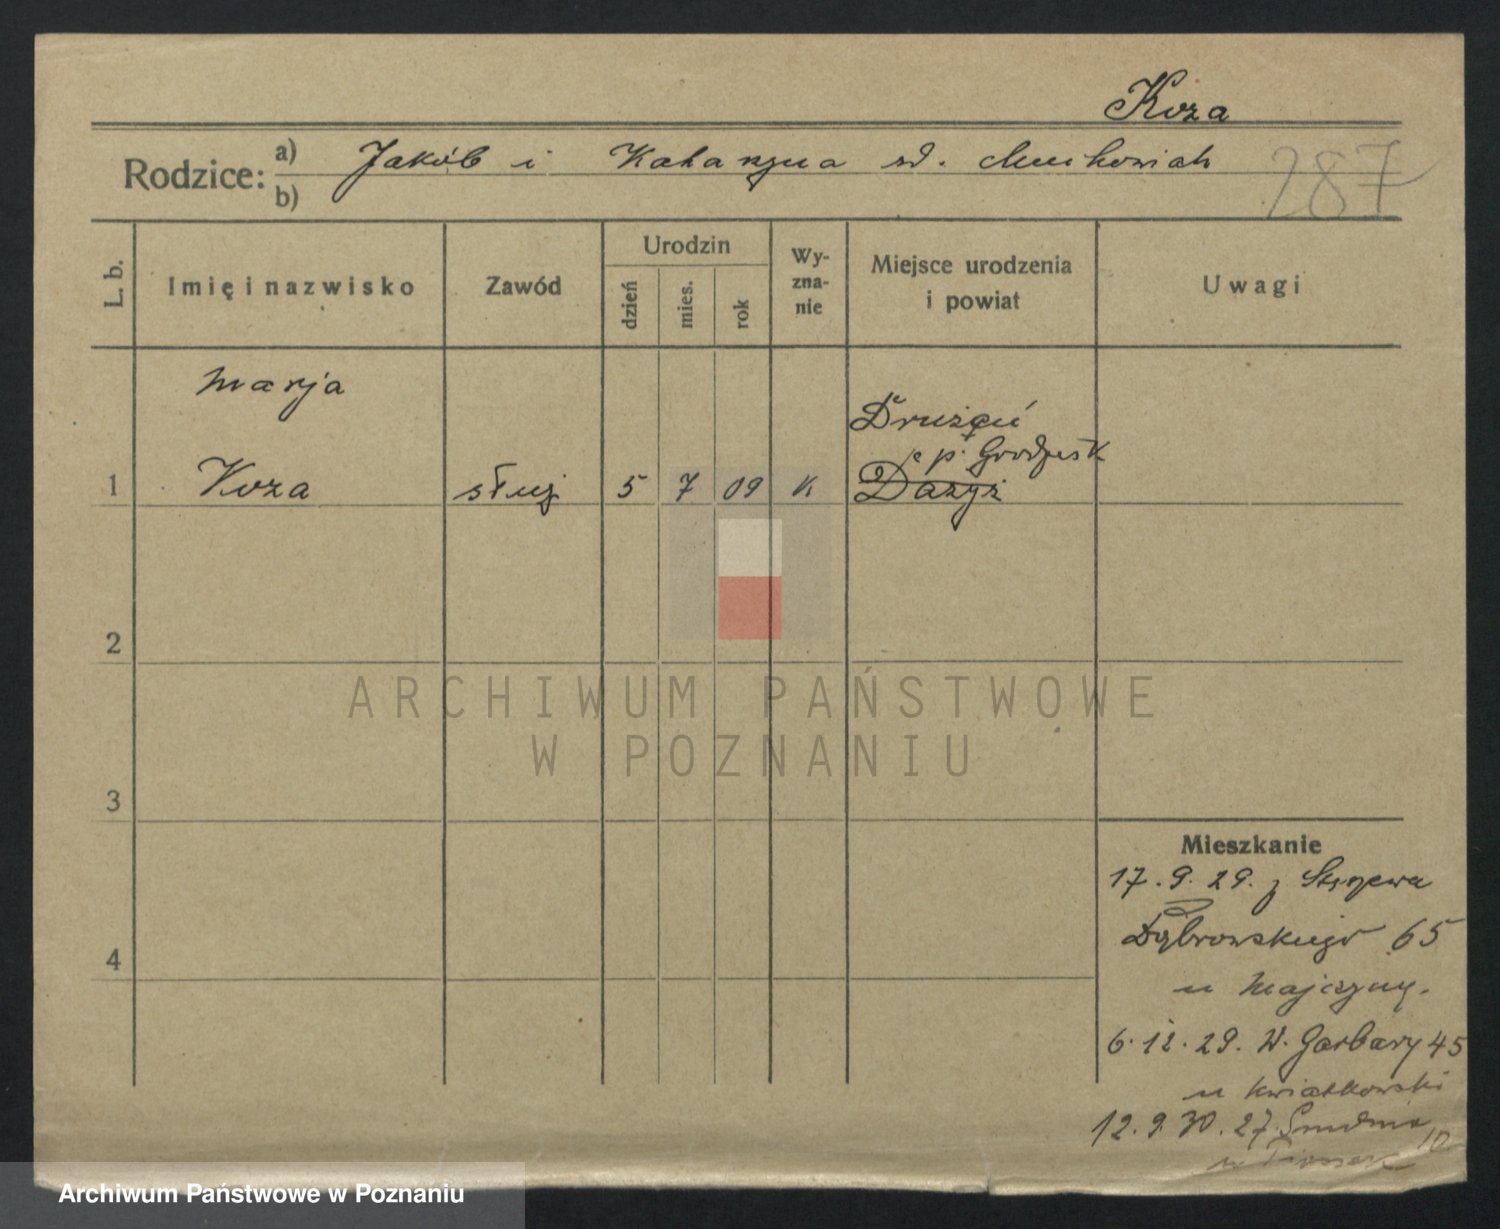 Koza
Rodzice: a) Jakób i Katarzyna
b)
287
L. b. Imię i nazwisko Zawód Urodzin dzień mies. rok Wyznanie Miejsce urodzenia i powiat Uwagi
Marja
Drużyń
p. Grodzisk
1 Koza służ 5 7 09 K
2
3
4
Mieszkanie
17.9.29. z Stęszewa
Dąbrowskiego 65
u
6.12.29. W. Garbary 45
u Kwiatkowski
12.9.30. 27. Grudnia 10
u
ARCHIWUM PAŃSTWOWE
W POZNANIU
Archiwum Państwowe w Poznaniu